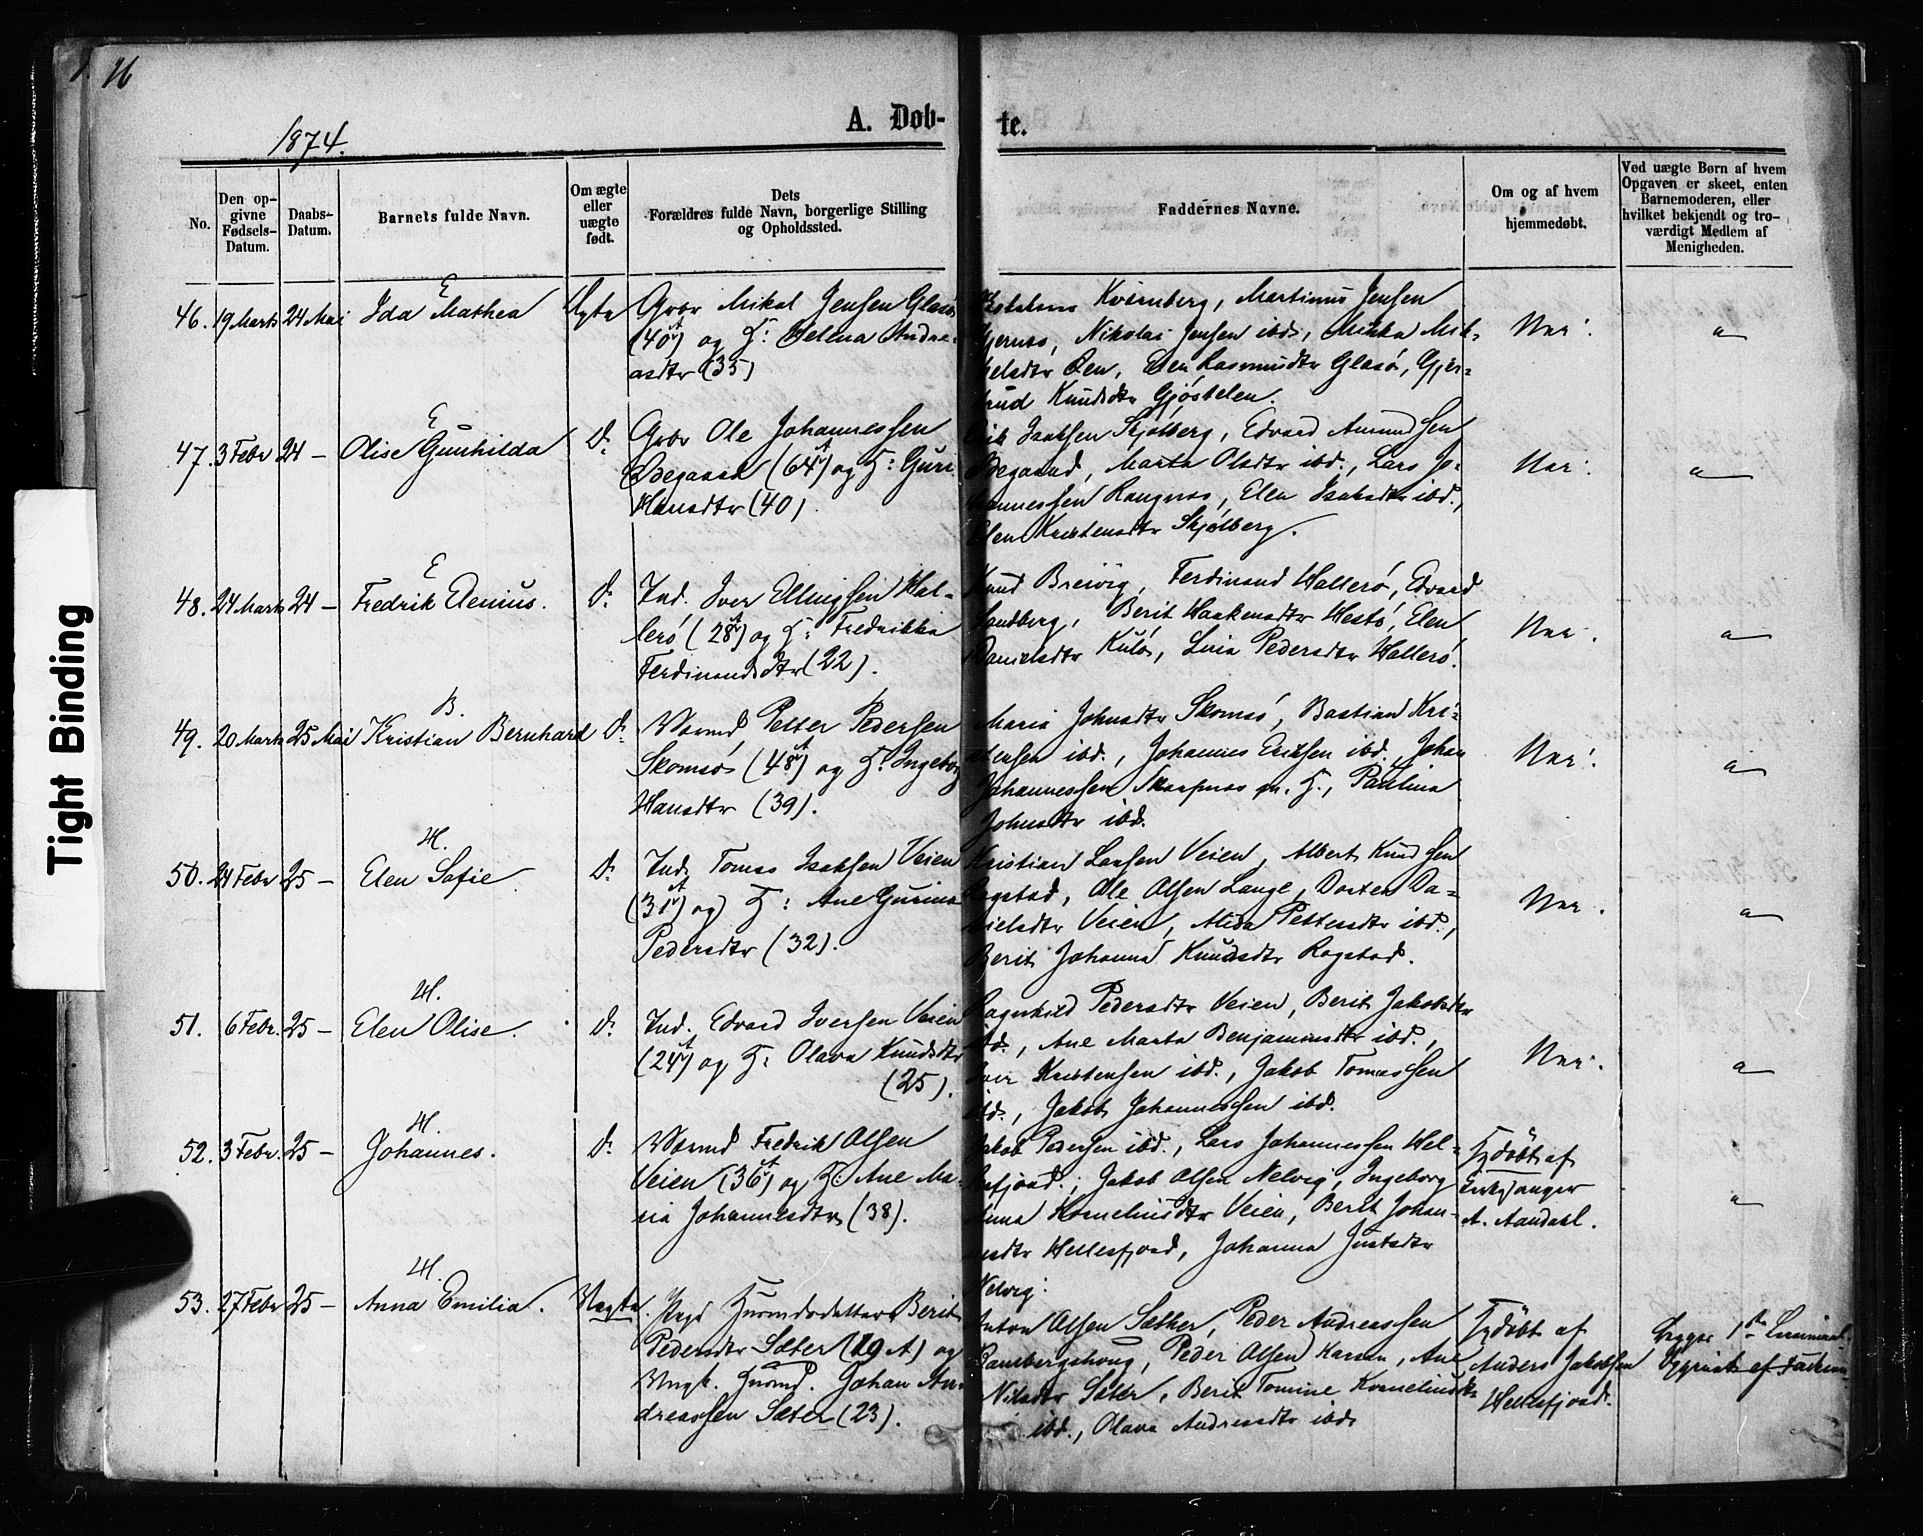 16
1874.
A. Døb-
te.
No.
Den op-
givne
Fødsels-
Datum.
Daabs-
Datum.
Barnets fulde Navn.
Om ægte
eller
uægte
født.
Dets
Forældres fulde Navn, borgerlige Stilling
og Opholdssted.
Faddernes Navne.
Om og af hvem
hjemmedøbt.
Ved uægte Børn af hvem
Opgaven er skeet, enten
Barnemoderen, eller
hvilket bekjendt og tro-
værdigt Medlem af
Menigheden.
E
46. 19 Marts 24 Mai Ida Mathea Ægte
Gbr Mikal Jensen Glasø
(40 A) og H: Helena Andre-
asdtr (35)
Kvernberg, Martinus Jensen
Nikolai Jensen ibd., Mik-
kelsdtr Øen, Elen Rasmusdtr Glasø, Gjer-
trud Knudsdtr Gjøstelen.
Nei.
E
47. 3 Febr 24 – Olise Gunhilda D:
Gbr Ole Johannessen
Ødegaard (64 A) og H: Guri
Hansdtr (40).
Erik Isaksen Skjølberg, Edvard Amundsen
Ødegaard, Marta Olsdtr ibd., Lars Jo-
hannessen Rangnes, Elen Isaksdtr ibd.,
Elen Kristensdtr Skjølberg.
Nei.
E
48. 24 Marts 24 – Fredrik Elenius. D:
Ind. Iver Ellingsen Hal-
lerø (28 A) og H: Fredrikka
Ferdinandsdtr (22).
Knud Breivig, Ferdinand Hallerø, Edvard
Sandberg, Berit Haakensdtr Hestø, Elen
Danielsdtr Kulø, Lina Pedersdtr Hallerø.
Nei.
B.
49. 20 Marts 25 Mai Kristian Bernhard D:
Petter Pedersen
Skomsø (48 A) og H: Ingeborg
Hansdtr (39).
Maria Johnsdtr Skomsø, Bastian Kri-
stensen ibd., Johannes Eriksen ibd., Johan
Johannessen Skarpnes m. H., Paulina
Johnsdtr ibd.
Nei.
H.
50. 24 Febr 25 – Elen Sofie D:
Ind. Tomas Isaksen Veien
(31 A) og H: Ane Gurina
Pedersdtr (32).
Kristian Larsen Veien, Albert Knudsen
Rogstad, Ole Olsen Lange, Dortea Da-
nielsdtr Veien, Alida Pettersdtr ibd.,
Berit Johanna Knudsdtr Rogstad.
Nei.
H.
51. 6 Febr. 25 – Elen Olise. D:
Ind. Edvard Iversen Veien
(24 A) og H: Olava Knudsdtr
(25).
Ragnhild Pedersdtr Veien, Berit Jakobsdtr
ibd., Ane Marta Benjaminsdtr ibd.,
Iver Kristensen ibd., Jakob Tomassen
ibd., Jakob Johannessen ibd.
Nei.
H.
52. 3 Febr. 25 – Johannes. D:
Fredrik Olsen
Veien (36 A) og H: Ane Ma-
ria Johannesdtr (38).
Jakob Pedersen ibd., Lars Johannessen Hel-
lesfjord., Jakob Olsen Nelvig, Ingeborg
Anna Kornelinsdtr Veien, Berit Johan-
nesdtr Hellesfjord, Johanna Justsdtr
Nelvig.
Hjdøbt af
Kirkjsanger
A. Aandahl.
H.
53. 27 Febr 25 – Anna Emilia. Uægte.
Pige Husmdsdatter Berit
Pedersdtr Sæter (19 A) og
Ungk. Husmd. Johan An-
dreassen Sæter (23).
Anton Olsen Sæther, Peder Andreassen
Ramsberghoug, Peder Olsen Karsen, Ane
Nilsdtr Sæter, Berit Tomine Kornelinsdtr
ibd., Olava Andreasdtr ibd.
Hjdøbt af
Anders Jakobsen
Hellesfjord.
Begges 1ste
af Faderen
Tight Binding